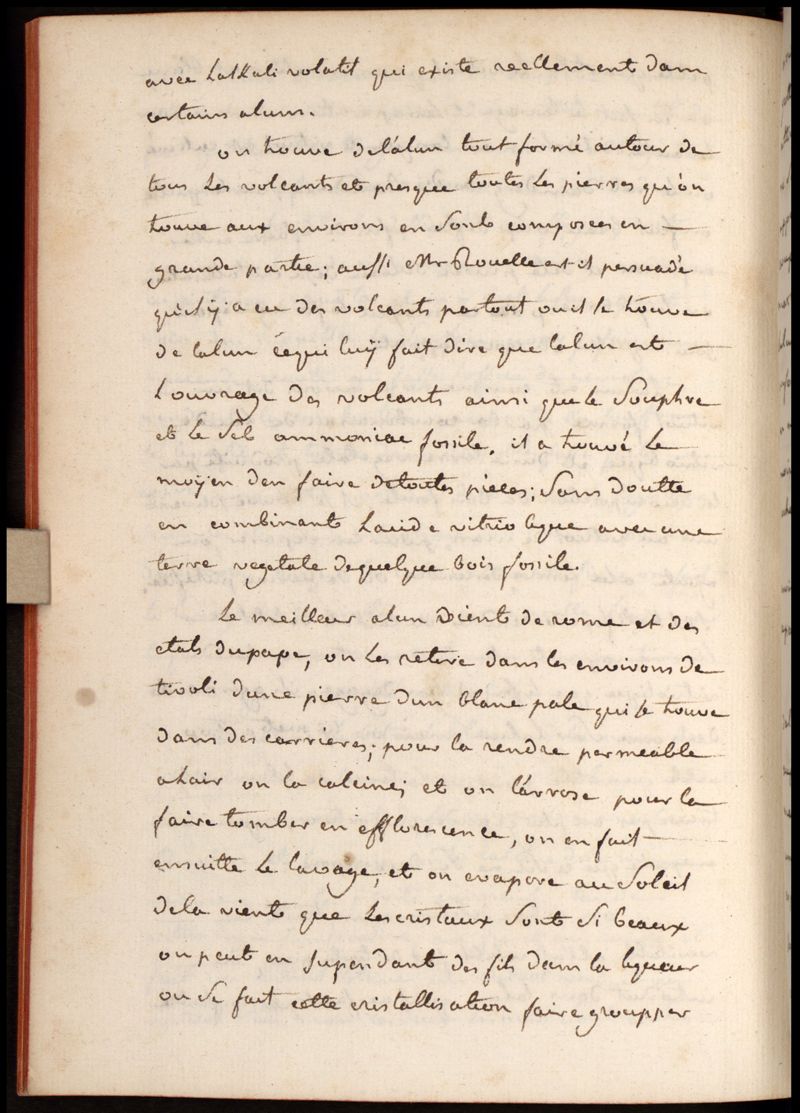 avec Lalkali volatil qui existe reellement dans
certains aluns.
on trouve delalun tout formé autour de
tous Les volcants et presque toutes Les pierres qu'on
trouve aux environs en Sont composées en —
grande partie; aussi Mr Rouelle est il persuadé
quil ÿ a eu des volcants partout ou il se trouve
de lalun cequi luÿ fait dire que lalun est —
Louvrage des volcants ainsi que le Souphre
et Le Sel ammoniac fossile. il a trouvé Le
moÿen den faire detoutes pieces; Sans doutte
en combinant Lacide vitriolique avec une
terre vegetale dequelque bois fossile.
Le meilleur alun vient de rome et des
etats dupape, on Les retire dans les environs de
tivoli dune pierre dun blanc pale qui se trouve
dans des carrieres; pour la rendre permeable
a Lair on la calcine; et on l'arrose pour la
faire tomber en efflorescence, on en fait —
ensuitte Le lavage, et on evapore au Soleil
dela vient que Les cristaux Sont Si beaux
on peut en supendant des fils dans la liqueur
ou Se fait cette cristallisation faire groupper